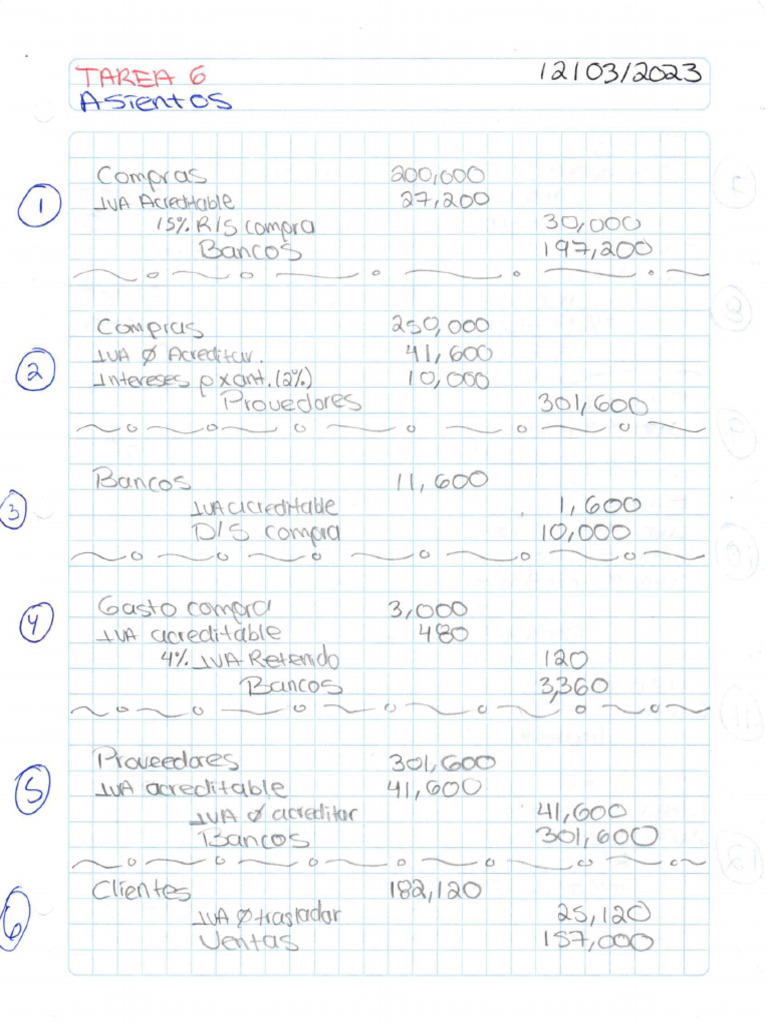 TAREA 6 12/03/2023
Asientos
1
Compras 200,000
IVA Acreditable 27,200
15% R/S compra 30,000
Bancos 197,200
2
Compras 250,000
IVA Ø Acreditar. 41,600
Intereses p x ant. (2%) 10,000
Provedores 301,600
3
Bancos 11,600
IVA acreditable 1,600
D/S compra 10,000
4
Gasto compra 3,000
IVA acreditable 480
4% IVA Retenido 120
Bancos 3,360
5
Proveedores 301,600
IVA acreditable 41,600
IVA Ø acreditar 41,600
Bancos 301,600
6
Clientes 182,120
IVA Ø trasladar 25,120
Ventas 157,000